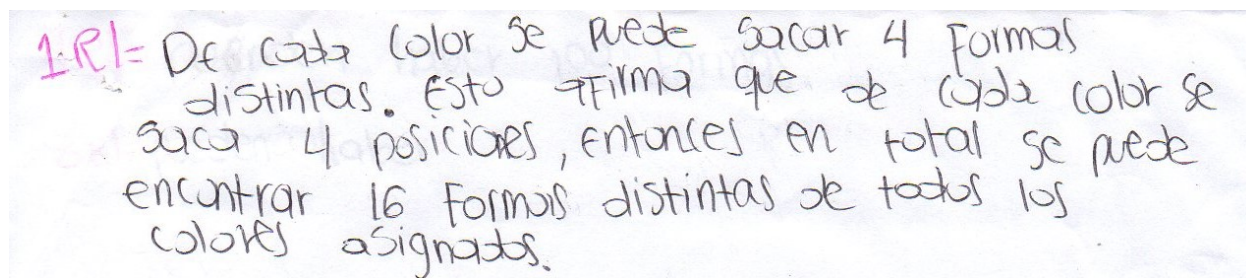 1.R/= De cada color se puede sacar 4 formas
distintas. Esto afirma que de cada color se
saca 4 posiciones, entonces en total se puede
encontrar 16 formas distintas de todos los
colores asignados.